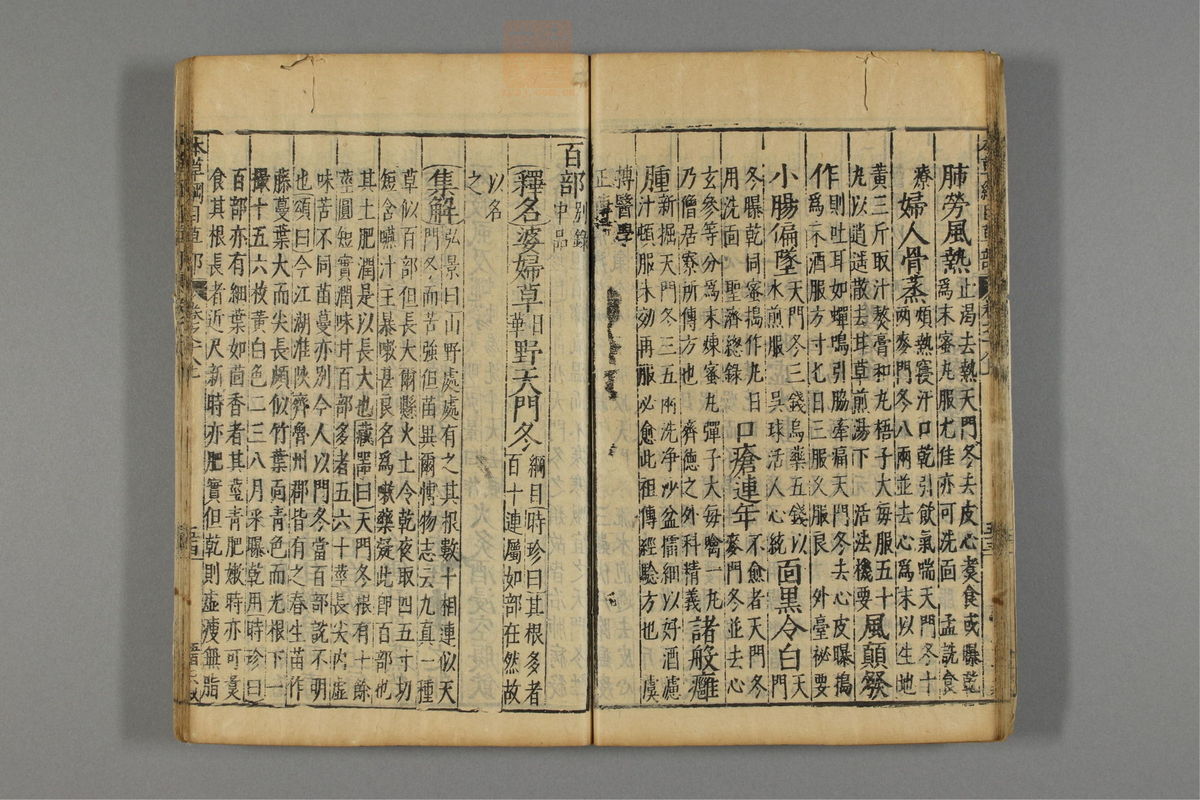 肺勞風熱止渴去熱天門冬去皮心煑食或曝乾
爲末蜜丸服尤佳亦可洗面 孟詵食
療婦人骨蒸煩熱寢汗口乾引飲氣喘天門冬十
兩麥門冬八兩並去心爲末以生地
黃三斤取汁熬膏和丸梧子大每服五十
丸以逍遥散去甘草煎湯下 活法機要風顛發
作則吐耳如蟬鳴引脇牽痛天門冬去心皮曝搗
爲末酒服方寸匕日三服久服良 外臺秘要
小腸偏墜天門冬三錢烏藥五錢以
水煎服 吳球活人心統面黑令白天門
冬曝乾同蜜搗作丸日
用洗面 聖濟總錄口瘡連年不愈者天門冬
麥門冬並去心
玄參等分爲末煉蜜丸彈子大每噙一丸
乃僧居寮所傳方也 齊德之外科精義諸般癰
腫新掘天門冬三五兩洗净沙盆擂細以好酒濾
汁頓服未効再服必愈此祖傳經驗方也 虞
摶醫學
正傳
百部别錄
中品
釋名婆婦草日
華野天門冬綱目時珍曰其根多者
百十連屬如部在然故
以名
之
集解弘景曰山野處處有之其根數十相連似天
門冬而苦強但苗異爾愽物志云九真一種
草似百部但長大爾懸火上令乾夜取四五寸切
短含嚥汁主暴嗽甚良名爲嗽藥凝此卽百部也
其土肥潤是以長大也藏噐曰天門冬根有十餘
莖圓短實潤味甘百部多者五六十莖長尖内虛
味苦不同苗蔓亦别今人以門冬當百部説不明
也頌曰今江湖淮陜齊魯州郡皆有之春生苗作
藤蔓葉大而尖長頗似竹葉面青色而光根下一
撮十五六枚黃白色二三八月采曝乾用時珍曰
百部亦有細葉如茴香者其莖青肥嫩時亦可煑
食其根長者近尺新時亦肥實但乾則虛瘦無脂